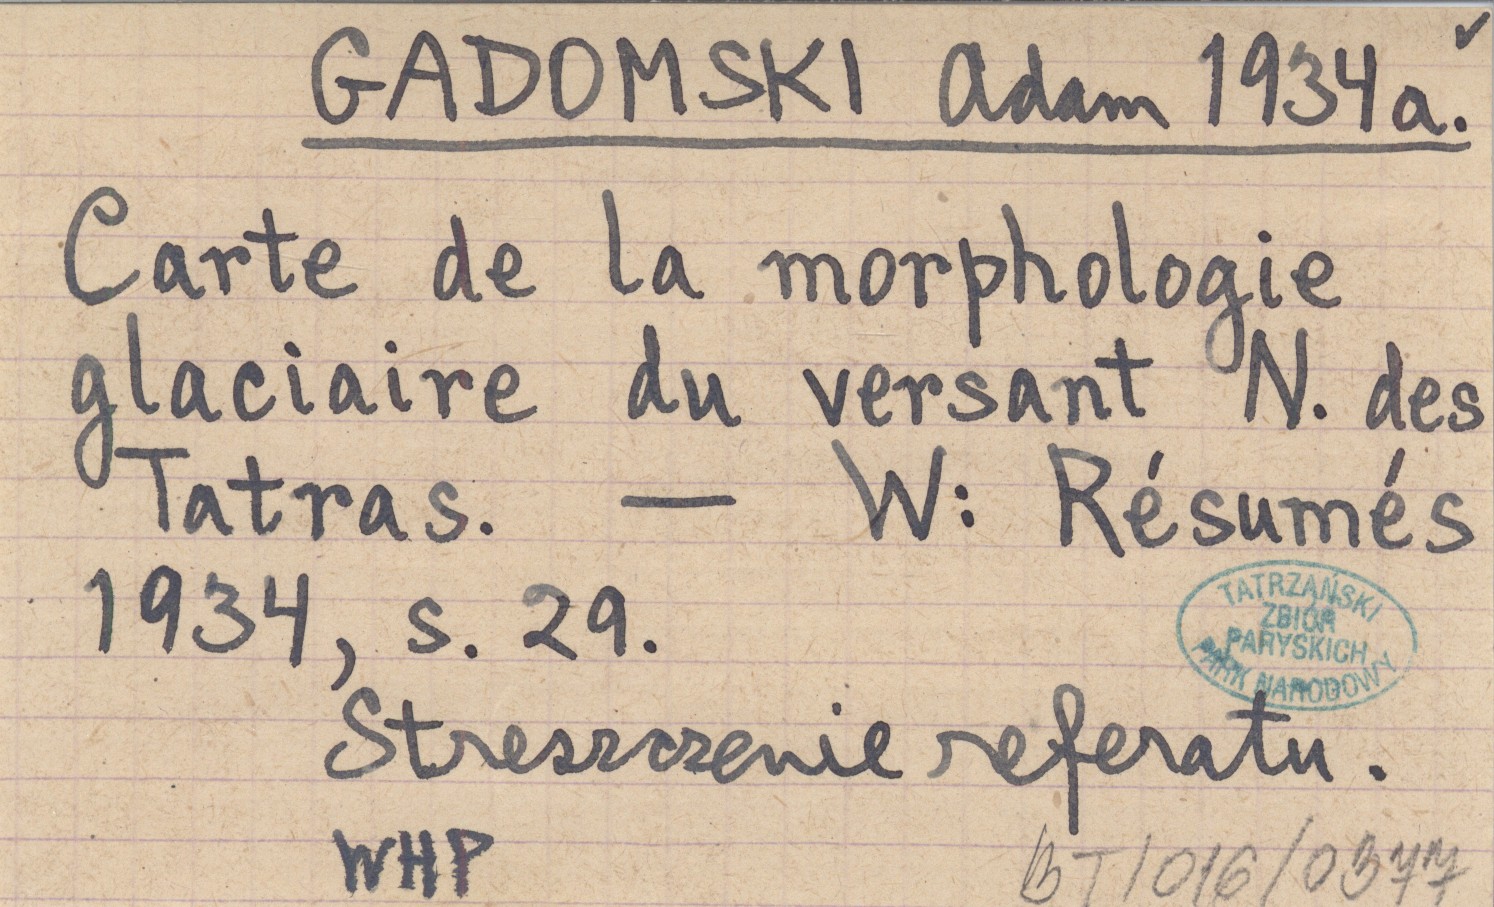 GADOMSKI Adam 1934a.
Carte de la morphologie
glaciaire du versant N. des
Tatras. — W: Résumés
1934, s. 29.
TATRZAŃSKI
ZBIÓR
PARYSKICH
PARK NARODOWY
Streszczenie referatu.
WHP
BT/016/0377